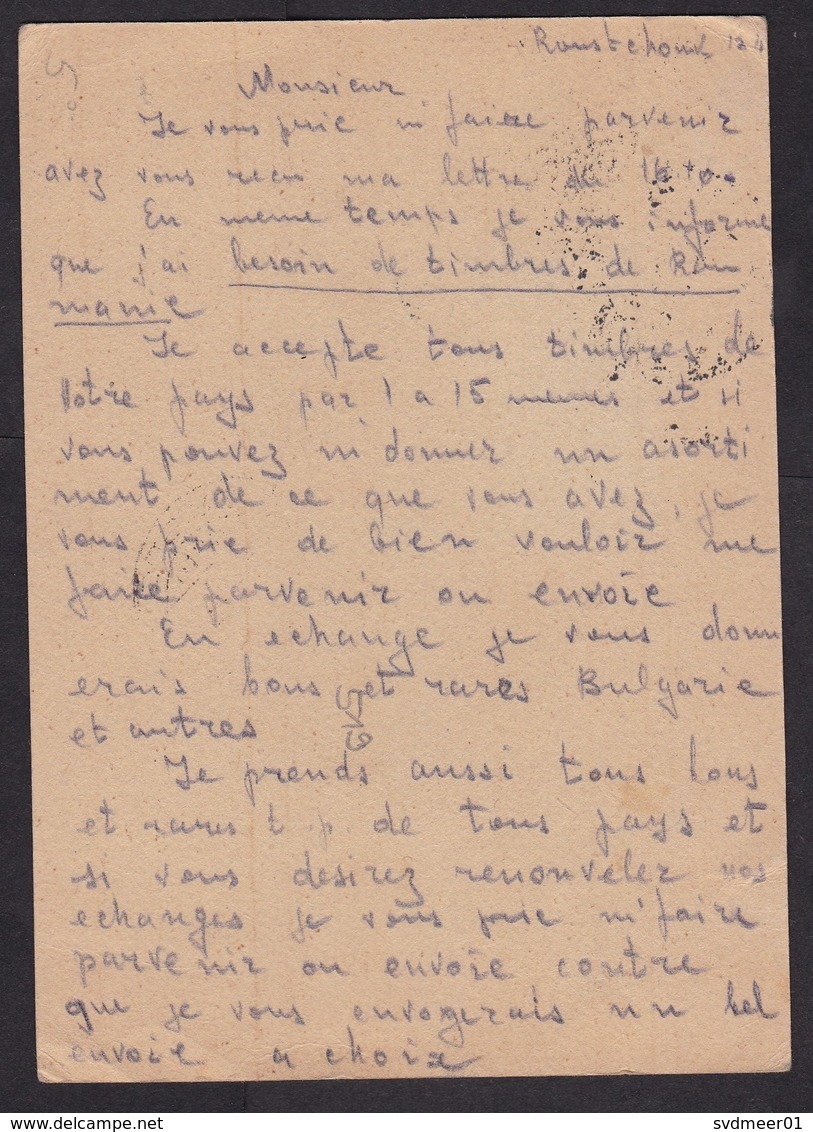 Roustchouk
Monsieur
Je vous prie m'faire parvenir
avez vous recu ma lettre du 16
En meme temps je vous informe
que j'ai besoin de timbres de Rou
manie
Je accepte tous timbres de
votre pays par 1 a 15 memes et si
vous pouvez m'donner un asorti
ment de ce que vous avez, je
vous prie de bien vouloir me
faire parvenir ou envoie
En echange je vous donn
erais bons et rares Bulgarie
et autres
Je prends aussi tous bons
et rares t.p. de tous pays et
si vous desirez renouveler nos
echanges je vous prie m'faire
parvenir ou envoie contre
que je vous envogerais un bel
envoie a choix
svdmeer01